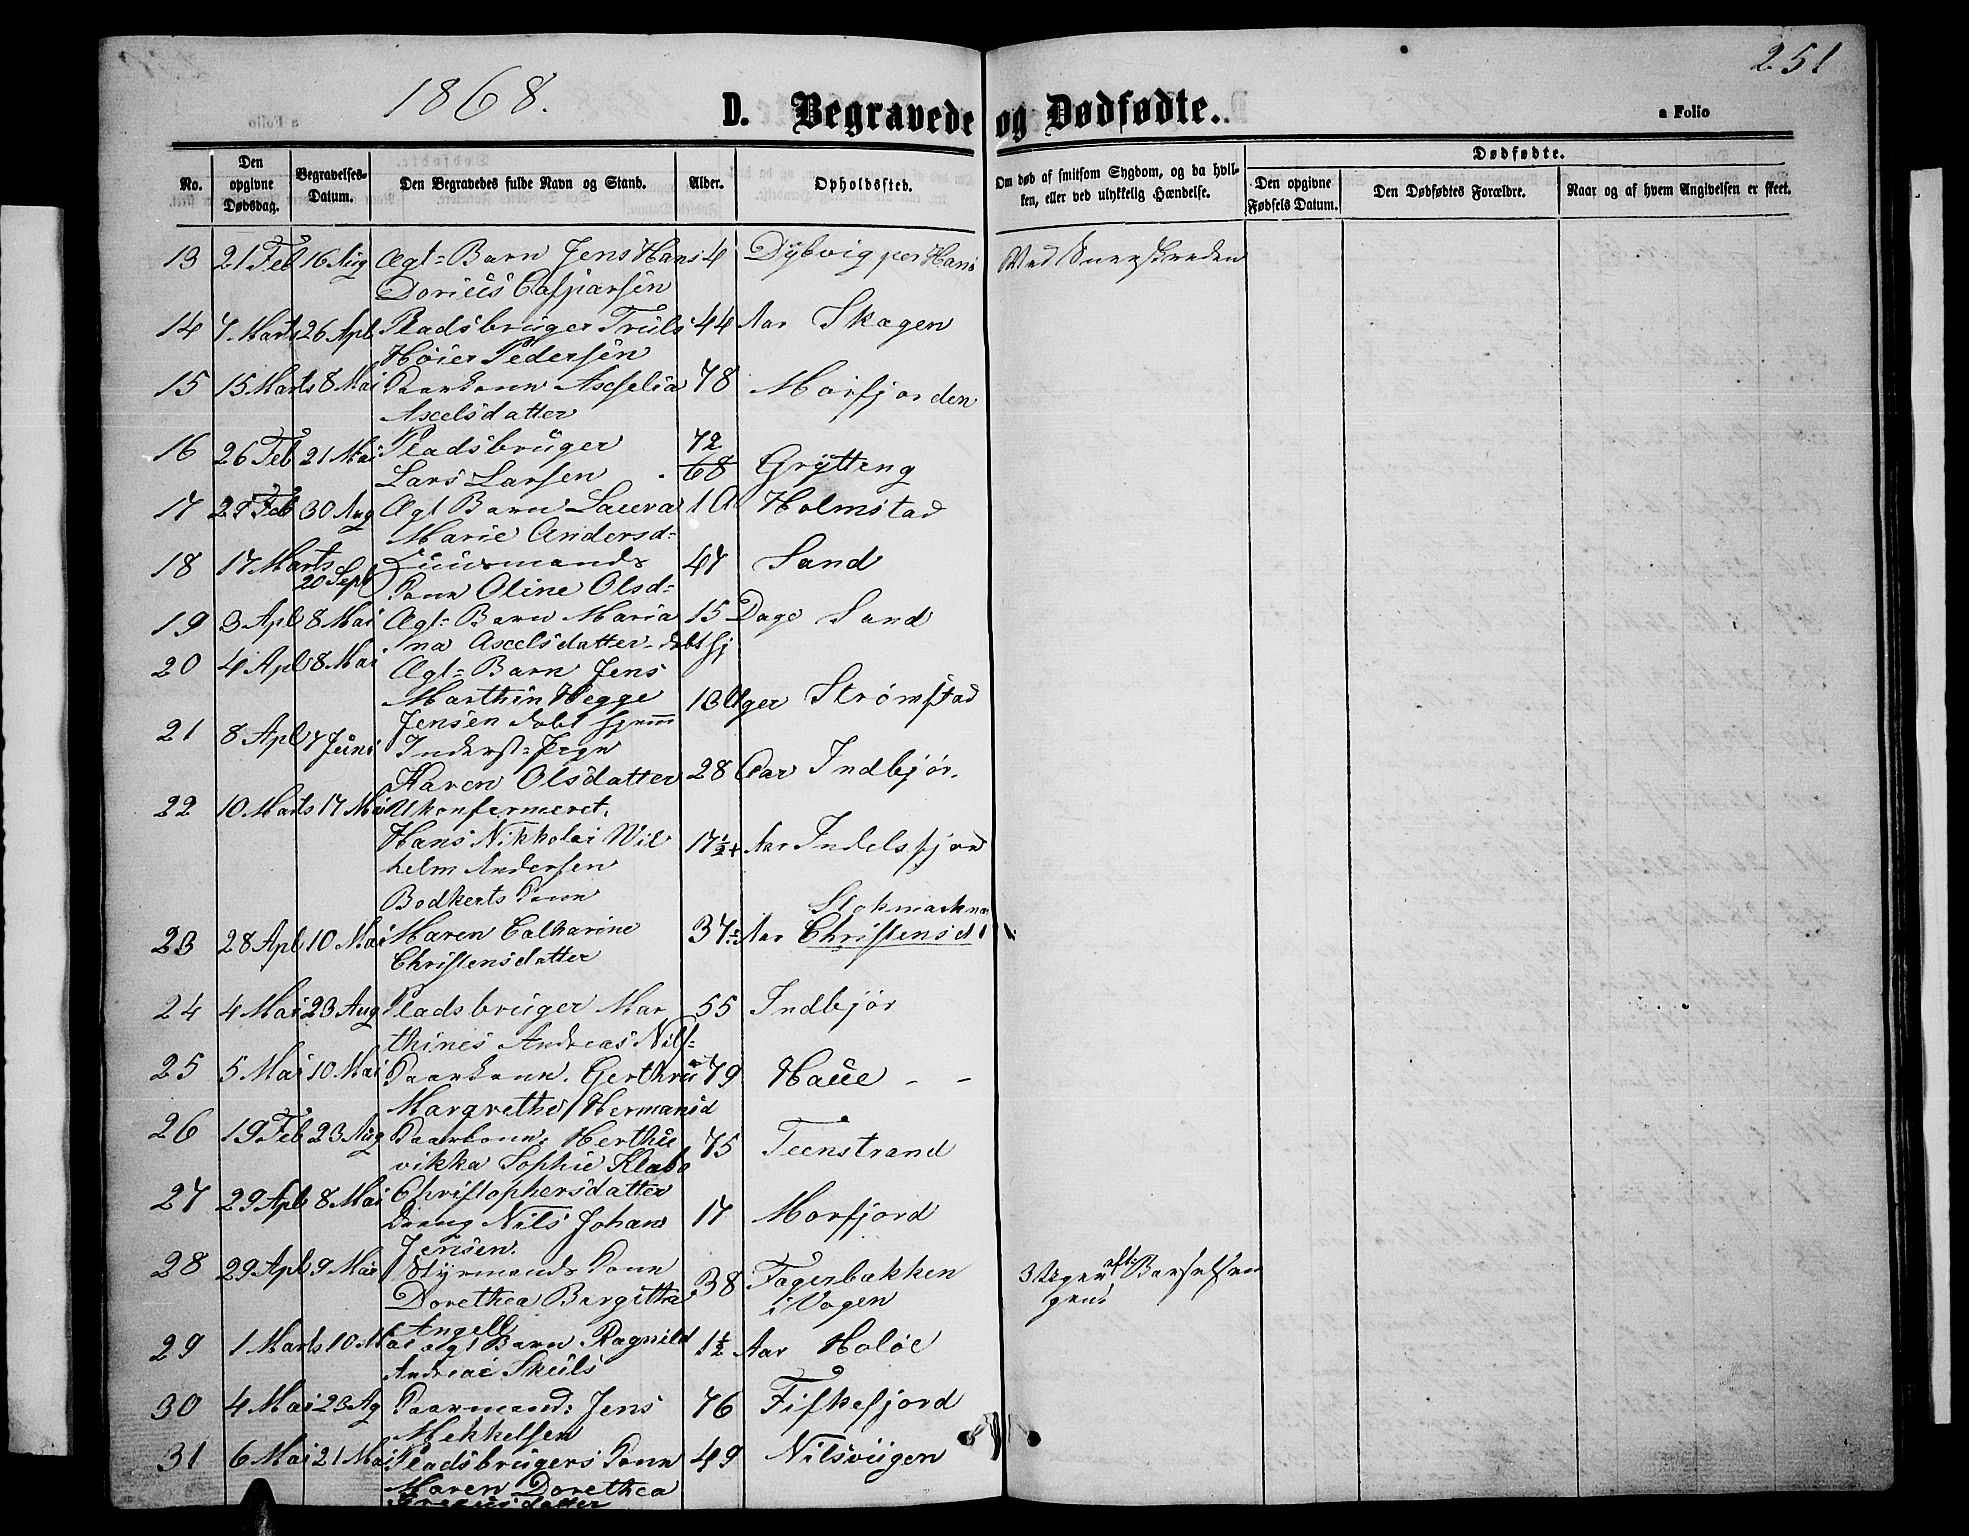 1868.
251
D. Begravede og Dødfødte.
a Folio
No.
Den opgivne Dødsdag.
Begravelses-Datum.
Den Begravedes fulde Navn og Stand.
Alder.
Opholdssted.
Om død af smitsom Sygdom, og da hvilken, eller ved ulykkelig Hændelse.
Dødfødte.
Den opgivne Fødsels Datum.
Den Dødfødtes Forældre.
Naar og af hvem Angivelsen er skeet.
13 21 Feb 16 Aug Ægt- Barn Jens Hans 4 Dybvig per Hans Ved Sneeskreden
Dorius Casparsen
14 7 Marts 26 Apl Pladsbruger Truls 44 Aar Skagen
Høier Pedersen
15 15 Marts 8 Mai Axselia 78 Morfjorden
Axcelsdatter
16 26 Feb 21 Mai Pladsbruger 72
Lars Larsen 68 Grytting
17 29 Feb 30 Aug Ægt Barn Laura 1 A Holmstad
Marie Andersd-
18 17 Marts 20 Sept Huusmands 47 Sand
Kone Oline Olsd-
19 3 Apl 8 Mai Ægt- Barn Maria 15 Dage Sand
na Axcelsdatter- døbt hj
20 4 Apl 8 Mai Ægt- Barn Jens
Marthin Hegge 10 Uger Strømstad
Jensen døbt hjem
21 8 Apl 7 Juni Inderst- Pige
Karen Olsdatter 28 Aar Indbjør.
22 10 Marts 17 Mai Ukonfermeret.
Hans Nikkolai Wil 17½ Aar Indelsfjord
helm Andersen
Bødkerts Kone Stokmarknæs
23 28 Apl 10 Mai Maren Catharine 37 Aar Christensd
Christensdatter
24 4 Mai 23 Aug Pladsbruger Mar 55 Indbjør
thines Andreas Nils-
25 5 Mai 10 Mai Gerthru 79 Haue - -
Margrethe Hermansd
26 19 Feb 23 Aug 75 Teenstrand
vikka Sophie
Christophersdatter
27 29 Apl 8 Mai Dreng Nils Johan 17 Morfjord
Jensen.
28 29 Apl 9 Mai Styrmands Kone 38 Fagerbakken 3 Uger efter Barselsen
Dorethea Birgitha i Vogen gen.
Angell
29 1 Marts 10 Mai Ægt Barn Ragnild 1½ Aar Holøe
Andreae Skuls
30 4 Mai 23 Ag Jens 76 Fiskefjord
Mekkelsen
31 6 Mai 21 Mai Pladsbrugers Kone 49 Nilsvugen
Maren Dorethea